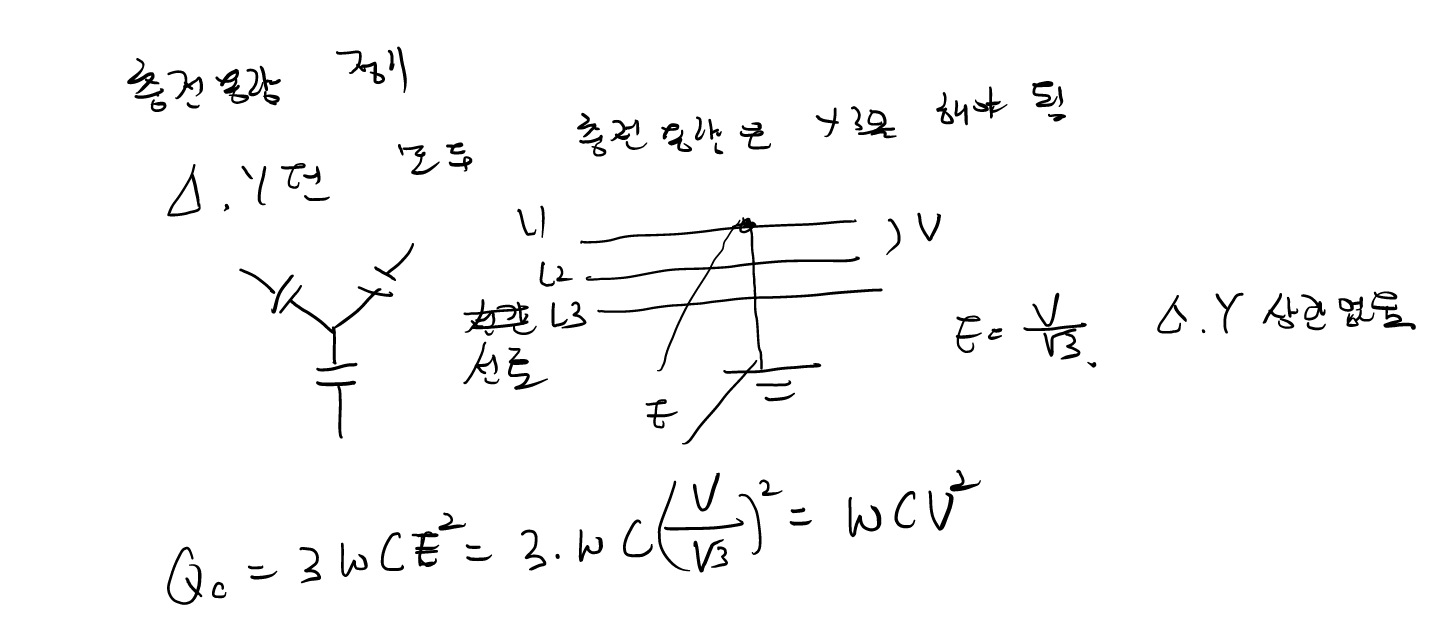 충전용량 정리
Δ.Y전 모두 충전용량은 Y로 해야 됨
L1
L2
L3
선로
V
E
E = V/√3. Δ.Y 상관없음
Qc = 3WCE² = 3.WC(V/√3)² = WCV²